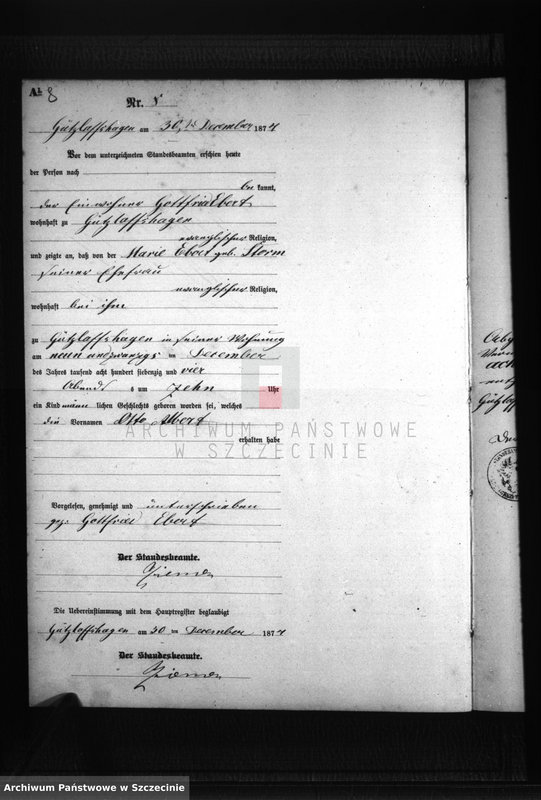 A1 8
Nr. 8
Gützlaffshagen am 30. ten December 1874
Vor dem unterzeichneten Standesbeamten erschien heute
der Person nach
be kannt,
der Einwohner Gottfried Ebert
wohnhaft zu Gützlaffshagen
evangelischer Religion,
und zeigte an, daß von der Marie Ebert geb. Storm
seiner Ehefrau
evangelischer Religion,
wohnhaft bei ihm
zu Gützlaffshagen in seiner Wohnung
am neun und zwanzigs ten December
des Jahres tausend acht hundert siebenzig und vier
Abends s um zehn Uhr
ein Kind männ lichen Geschlechts geboren worden sei, welches
die Vornamen Otto Albert
erhalten habe
Vorgelesen, genehmigt und unterschrieben
gez. Gottfried Ebert
Der Standesbeamte.
Die Uebereinstimmung mit dem Hauptregister beglaubigt
Gützlaffshagen am 30 ten December 1874
Der Standesbeamte.
ARCHIWUM PAŃSTWOWE
W SZCZECINIE
Archiwum Państwowe w Szczecinie